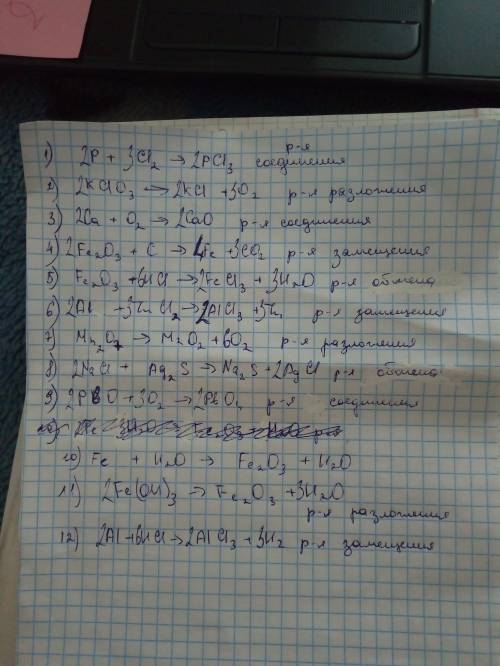 р-я
1) 2P + 3Cl₂ → 2PCl₃ соединения
2) 2KClO₃ → 2KCl + 3O₂ р-я разложения
3) 2Ca + O₂ → 2CaO р-я соединения
4) 2Fe₂O₃ + C → 4Fe + 3CO₂ р-я замещения
5) Fe₂O₃ + 6HCl → 2FeCl₃ + 3H₂O р-я обмена
6) 2Al + 3ZnCl₂ → 2AlCl₃ + 3Zn р-я замещения
7) Mn₂O₇ → MnO₂ + 6O₂ р-я разложения
8) 2NaCl + Ag₂S → Na₂S + 2AgCl р-я обмена
9) 2PbO + 3O₂ → 2PbO₄ р-я соединения
10) Fe + H₂O → Fe₂O₃ + H₂O
11) 2Fe(OH)₃ → Fe₂O₃ + 3H₂O
р-я разложения
12) 2Al + 6HCl → 2AlCl₃ + 3H₂ р-я замещения